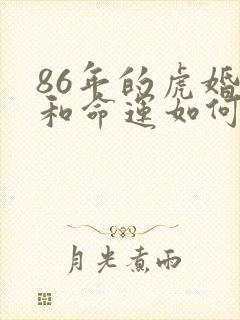 86年的虎婚
和命运如何
月光煮雨